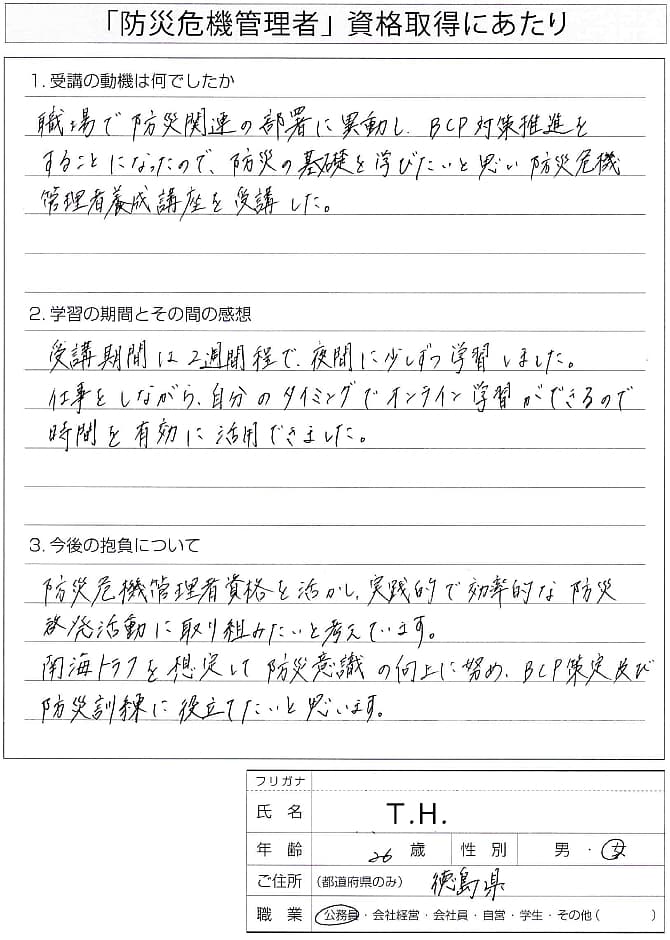 「防災危機管理者」資格取得にあたり
1. 受講の動機は何でしたか
職場で防災関連の部署に異動し、BCP対策推進を
することになったので、防災の基礎を学びたいと思い防災危機
管理者養成講座を受講した。
2. 学習の期間とその間の感想
受講期間は2週間程で、夜間に少しずつ学習しました。
仕事をしながら、自分のタイミングでオンライン学習ができるので
時間を有効に活用できました。
3. 今後の抱負について
防災危機管理者資格を活かし、実践的で効率的な防災
啓発活動に取り組みたいと考えています。
南海トラフを想定して防災意識の向上に努め、BCP策定及び
防災訓練に役立てたいと思います。
フリガナ
氏名 T.H.
年齢 26 歳 性別 男・女
ご住所 (都道府県のみ) 徳島県
職業 公務員・会社経営・会社員・自営・学生・その他( )